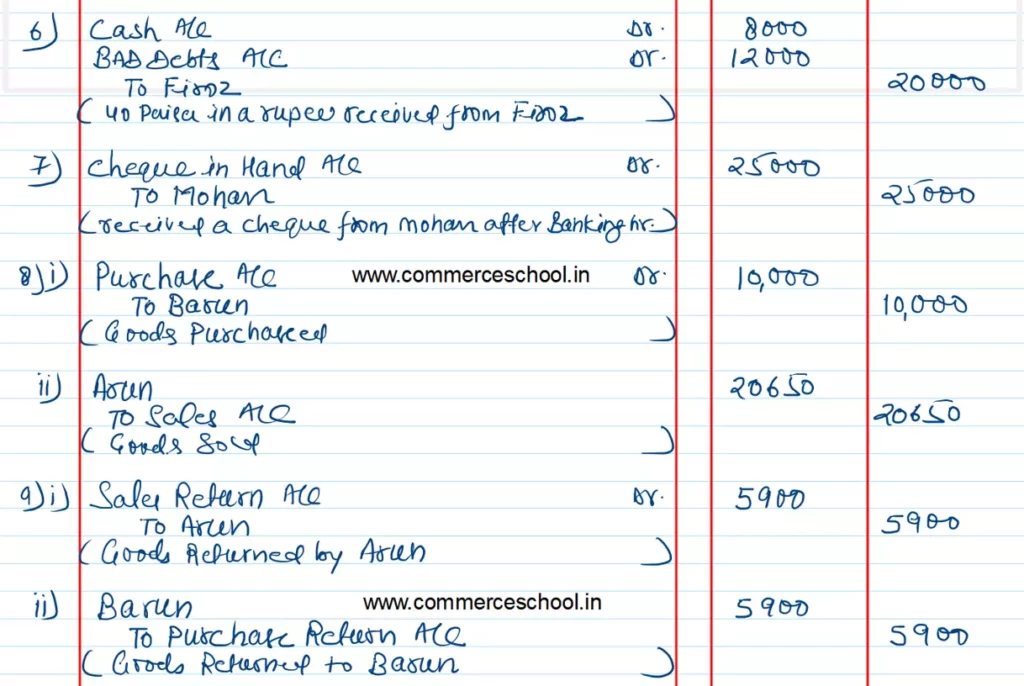 6) Cash A/C Dr. 8000
BAD Debts A/C Dr. 12000
To Firoz 20000
(40 Paisa in a rupee received from Firoz)
7) Cheque in Hand A/C Dr. 25000
To Mohan 25000
(received a cheque from mohan after Banking hr.)
8) i) Purchase A/C www.commerceschool.in Dr. 10,000
To Barun 10,000
(Goods Purchased)
ii) Arun 20650
To Sales A/C 20650
(Goods Sold)
9) i) Sales Return A/C Dr. 5900
To Arun 5900
(Goods Returned by Arun)
ii) Barun www.commerceschool.in 5900
To Purchase Return A/C 5900
(Goods Returned to Barun)